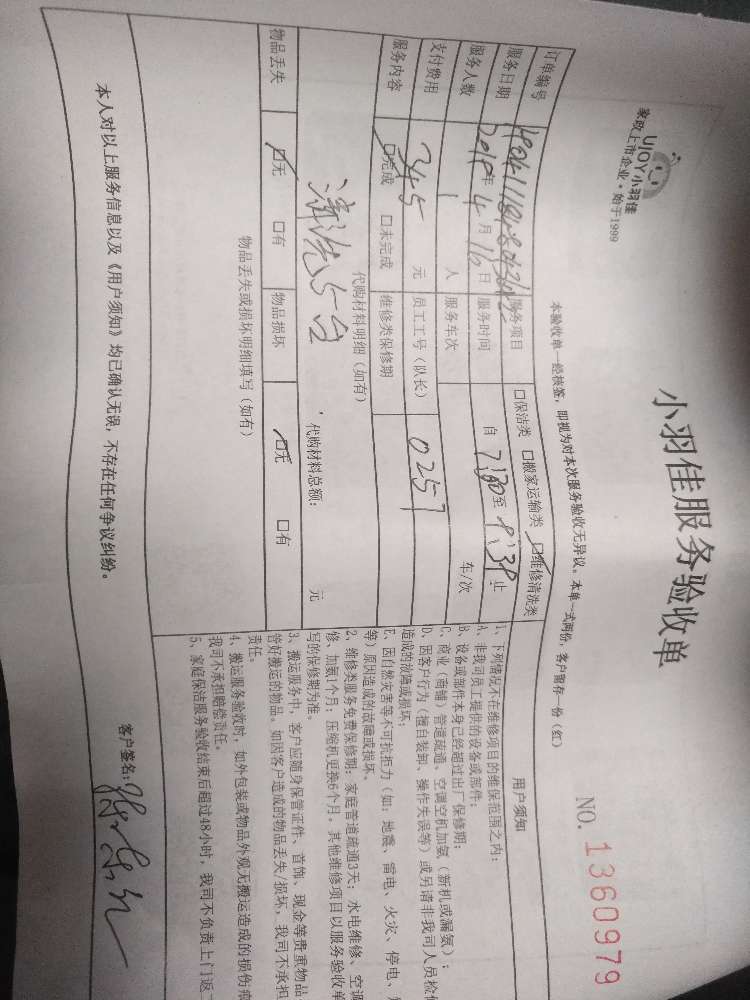 UJOY小羽佳
家政上市企业·始于1999
小羽佳服务验收单
NO. 1360979
本验收单一经核签，即视为对本次服务验收无异议。本单一式两份，客户留存一份（红）
订单编号
服务项目 □保洁类 □搬家运输类 ☑维修清洗类
服务日期 年 4 月 16 日 服务时间 自 7:30 至 止
服务人数 1 人 服务车次 车/次
支付费用 345 元 员工工号（队长） 0257
服务内容 ☑完成 □未完成 维修类保修期
代购材料明细（如有）
清洗5台
，代购材料总额： 元
物品丢失 ☑无 □有 物品损坏 ☑无 □有
物品丢失或损坏明细填写（如有）
本人对以上服务信息以及《用户须知》均已确认无误，不存在任何争议纠纷。
用户须知
1、下列情况不在维修项目的维保范围之内：
A、非我司员工提供的设备或部件；
B、设备或部件本身已经超过出厂保修期；
C、商业（商铺）管道疏通、空调空机加氨（新机或漏氨）；
D、因客户行为（擅自装卸、操作失误等）或另请非我司人员检
造成的故障或损坏；
E、因自然灾害等不可抗拒力（如：地震、雷电、火灾、停电、
等）原因造成的故障或损坏、
2、维修类服务免费保修期：家庭管道疏通3天；水电维修、空调
修、加氨1个月；压缩机更换6个月，其他维修项目以服务验收单
写的保修期为准。
3、搬运服务中，客户应随身保管证件、首饰、现金等贵重物品
管好搬运的物品。如因客户造成的物品丢失/损坏，我司不承担
责任。
4、搬运服务验收时，如外包装或物品外观无搬运造成的损伤痕
我司不承担赔偿责任。
5、家庭保洁服务验收结束后超过48小时，我司不负责上门返
客户签名：